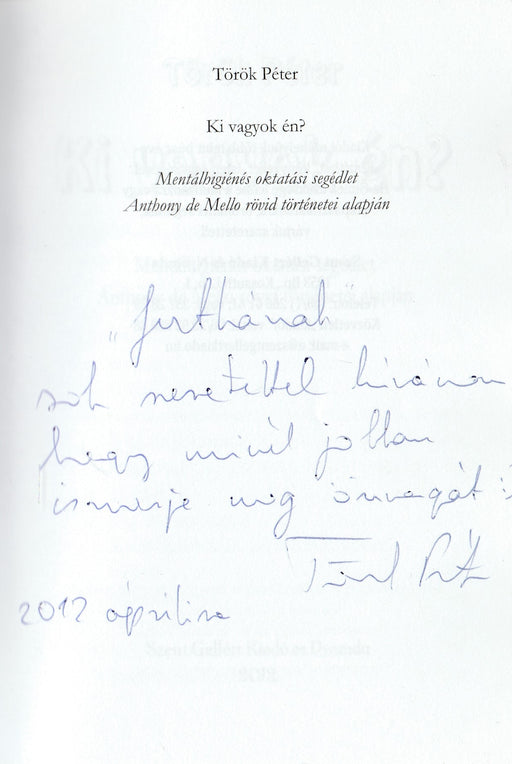 Török Péter
Ki vagyok én?
Mentálhigiénés oktatási segédlet
Anthony de Mello rövid történetei alapján
sok szeretettel kívánom
hogy minél jobban
ismerje meg önmagát :
Török Péter
2012 április